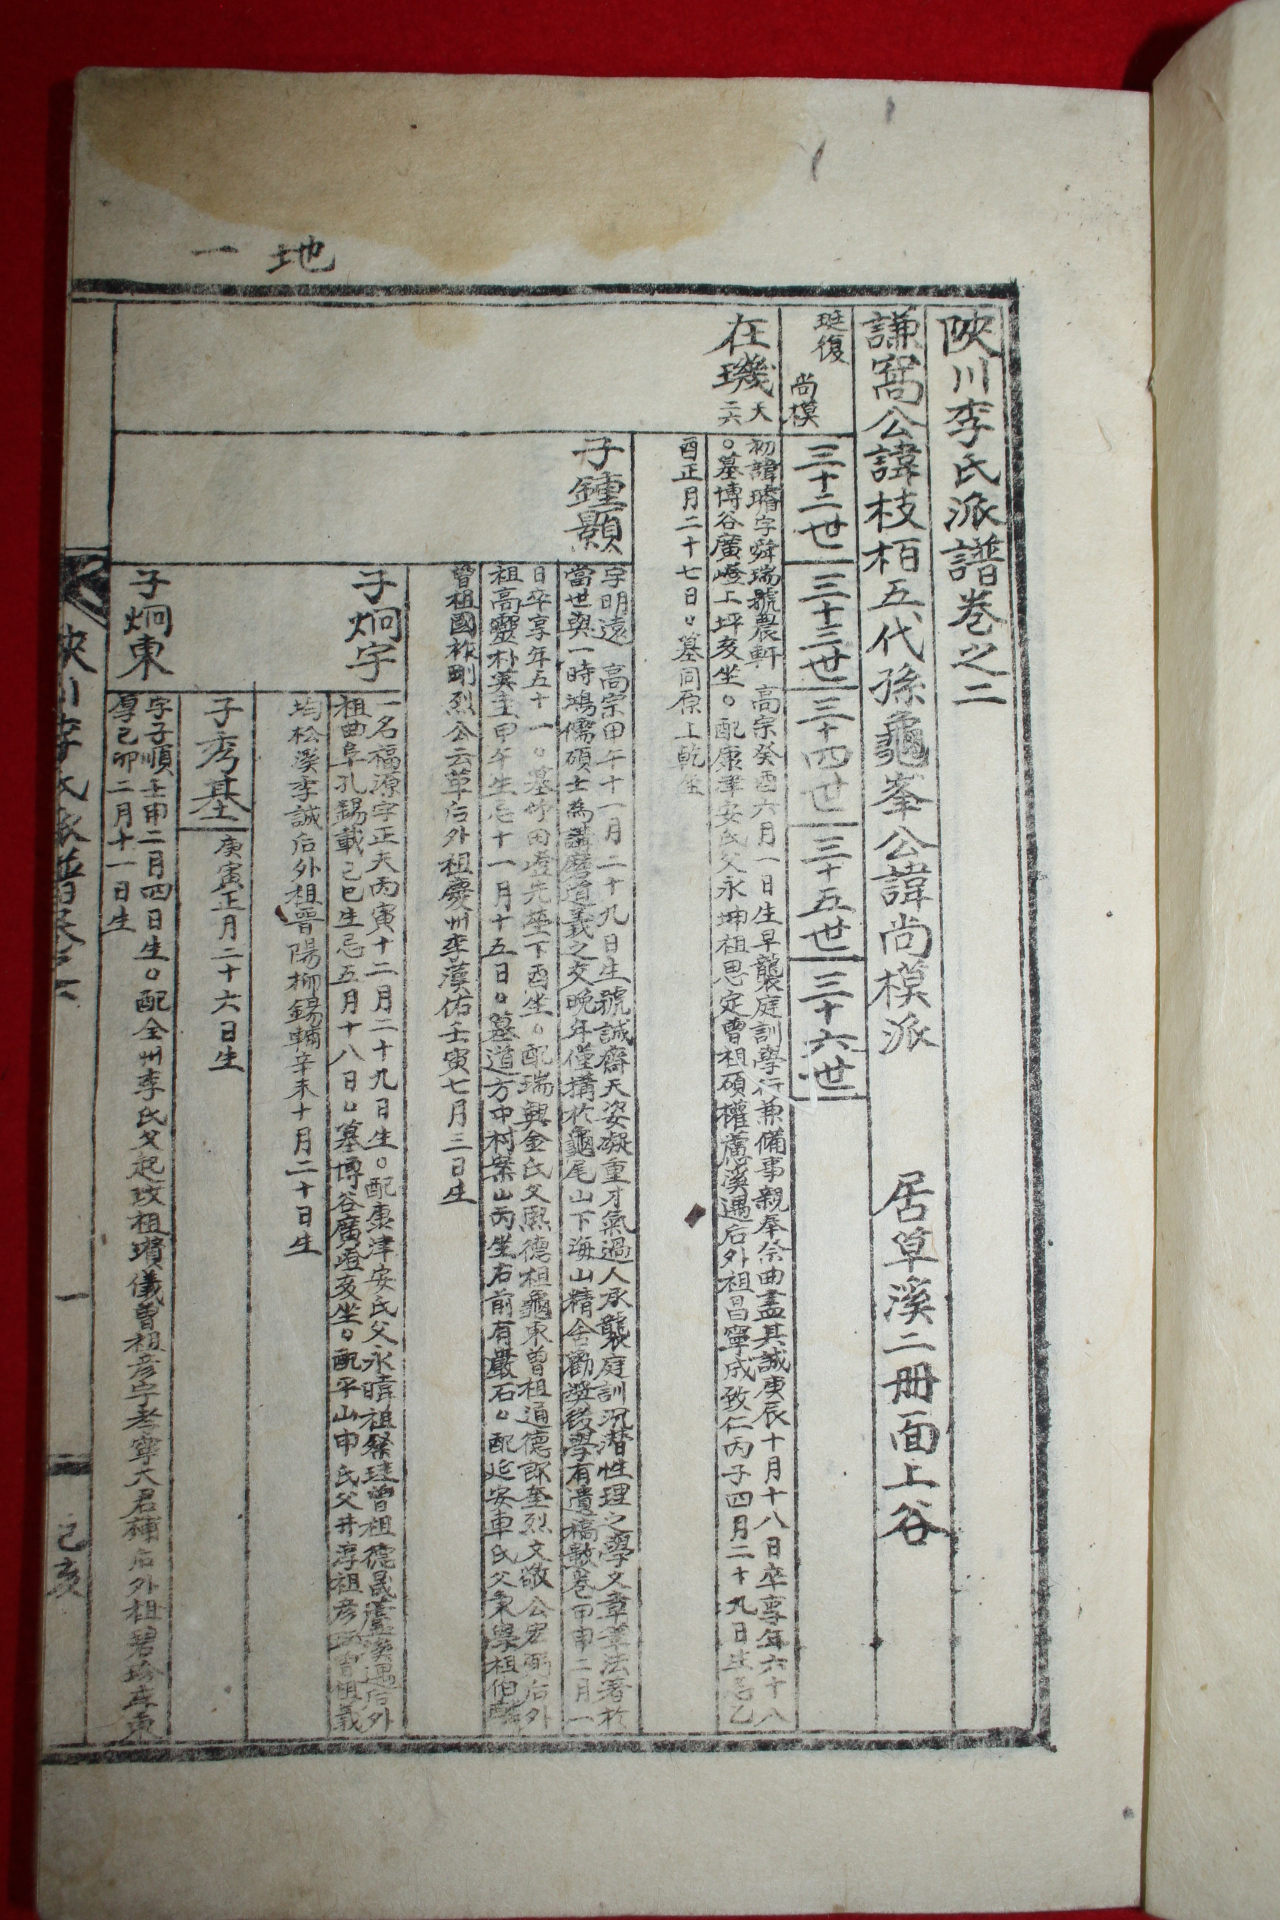 地 一
陜川李氏派譜卷之二
謙窩公諱枝栢五代孫龜峯公諱尚模派 居草溪二冊面上谷
珽復
尚模
三十二世 三十三世 三十四世 三十五世 三十六世
在璣 天 二六
初諱璿字舜瑞號農軒 高宗癸酉六月一日生早襲庭訓學行兼備事親奉祭曲盡其誠庚辰十月十八日卒享年六十八
○墓博谷廣嶝上坪亥坐○配康津安氏父永坤祖思定曾祖碩權蘆溪遇后外祖昌寧成致仁丙子四月二十九日生忌乙
酉正月二十七日○墓同原上乾坐
子鍾顥
字明遠 高宗甲午十一月二十九日生號誠齋天姿凝重才氣過人承襲庭訓沉潛性理之學文章筆法著於
當世與一時鴻儒碩士為講磨道義之交晚年僅搆於龜尾山下海山精舍勸獎後學有遺稿數卷甲申二月一
日卒享年五十一○墓竹田嶝先塋下酉坐○配瑞興金氏父熙德祖龜東曾祖通德郎奎烈文敬公宏弼后外
祖高靈朴寅圭甲午生忌十一月十五日○墓道方中村案山丙坐右前有巖石○配延安車氏父秉 祖伯
曾祖國祚剛烈公云革后外祖慶州李漢佑壬寅七月三日生
子炯宇
一名福源字正夫丙寅十二月二十九日生○配康津安氏父永暲祖 珪曾祖德晟蘆溪遇后外
祖曲阜孔錫載己巳生忌五月十八日○墓博谷廣嶝亥坐○配平山申氏父井淳祖彦 曾祖義
均松溪李誠后外祖晋陽柳錫輔辛未十月二十日生
子秀基
庚寅正月二十六日生
子炯東
字子順壬申二月四日生○配全州李氏父起玫祖瓚儀曾祖彦宇孝寧大君補后外祖碧珍李東
厚己卯二月十一日生
陜川李氏派譜卷之
一
己亥